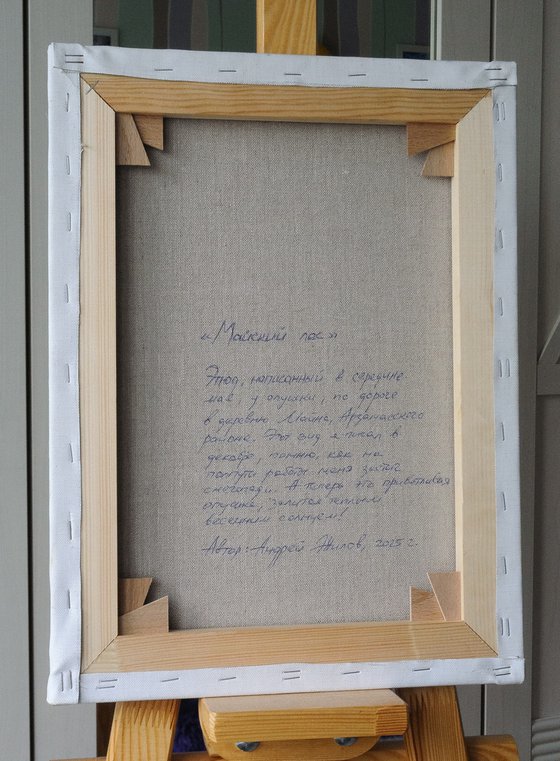 «Майский лес»
Этюд, написанный в середине
мая, у опушки, по дороге
в деревню Майна, Арзамасского
района. Этот вид я писал в
декабре, помню, как на
полпути работы меня застал
снегопад. А теперь это приветливая
опушка, залитая теплым
весенним солнцем!
Автор: Андрей Жилов, 2025 г.